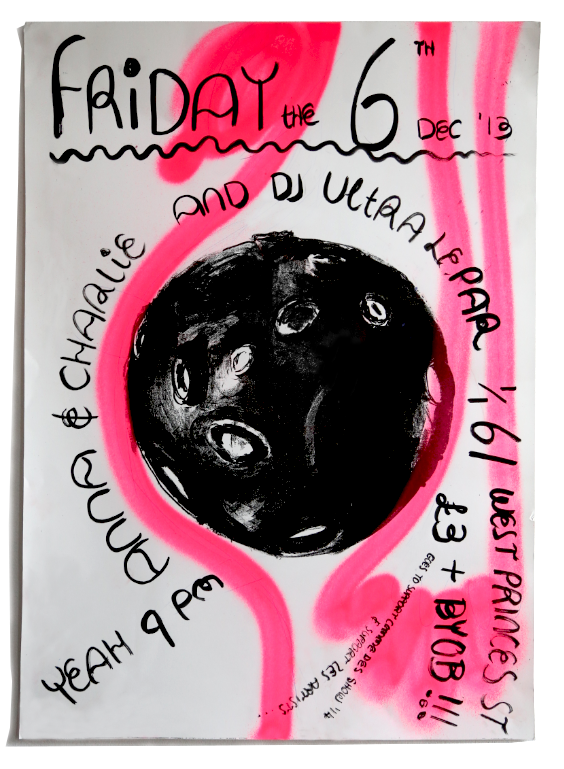 FRiDAY the 6TH DEC '13
ANNA & CHARLIE
AND DJ ULtRA LEPAR
1/1, 61 WEST PRINCES ST
£3 + BYOB !!!
GOES TO SUPPORT COMMUNE DES SHOW 1/4
& SUPPORT LES ARTISTS...
YEAH 9 PM